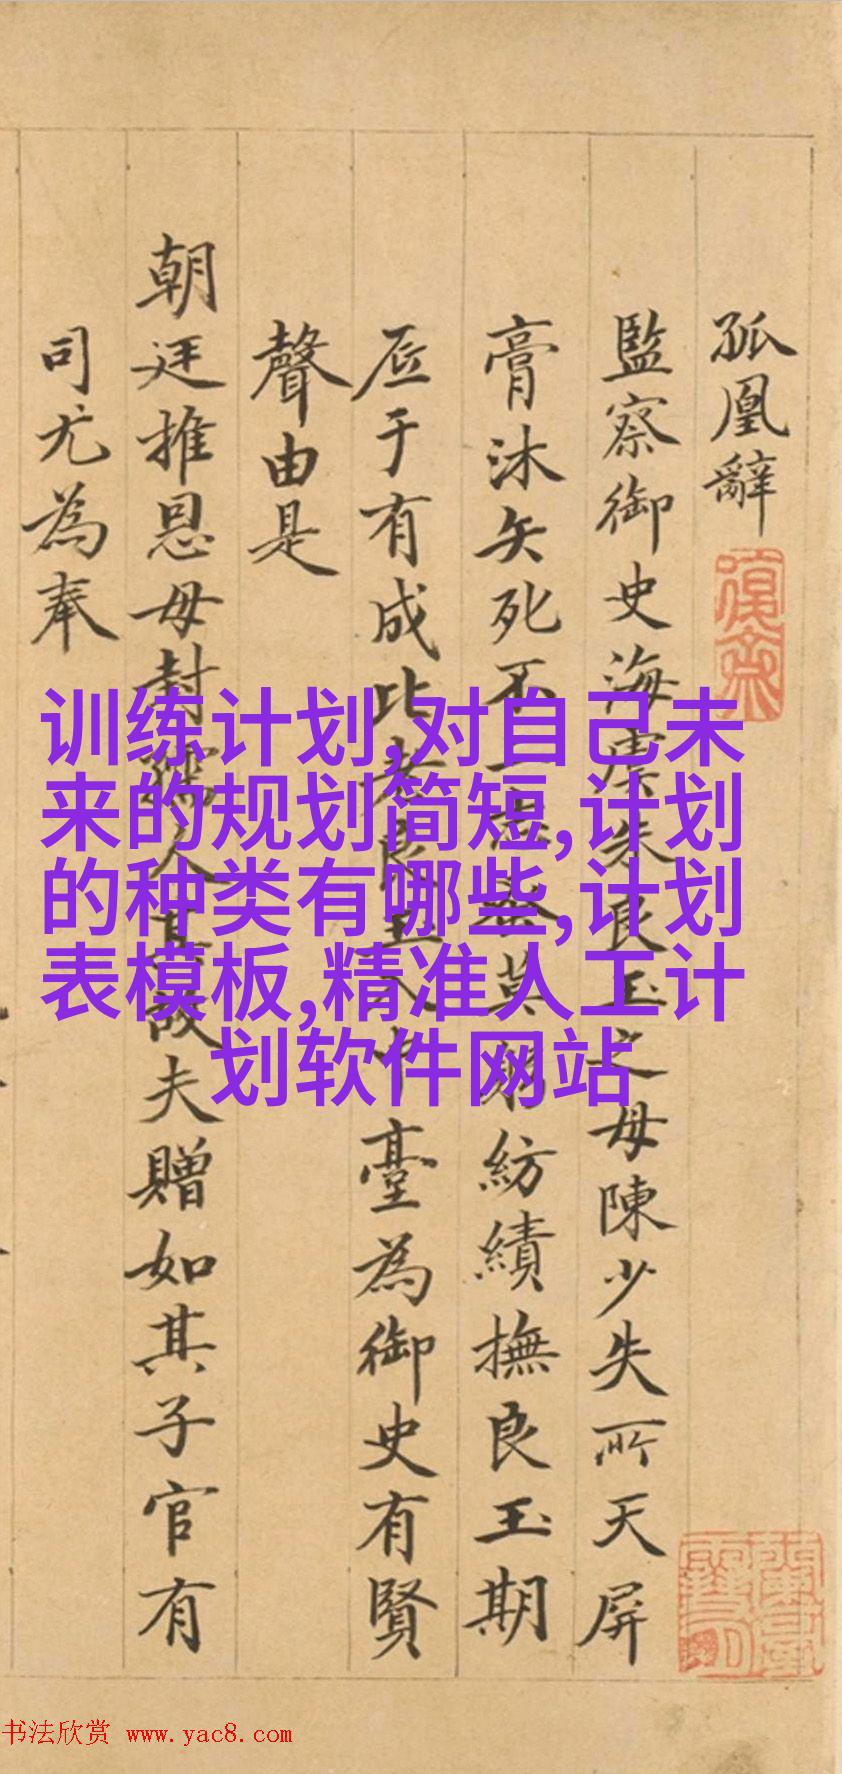 孤凰辭
監察御史海虞朱良玉之母陳少失所天屏
膏沐矢死不二志益莫躬紡績撫良玉期
底于有成比者良玉入中臺為御史有賢
聲由是
朝廷推恩母封孺人其故夫贈如其子官有
司尤為奉
训练计划,对自己未
来的规划简短,计划
的种类有哪些,计划
表模板,精准人工计
划软件网站
书法欣赏 www.yac8.com